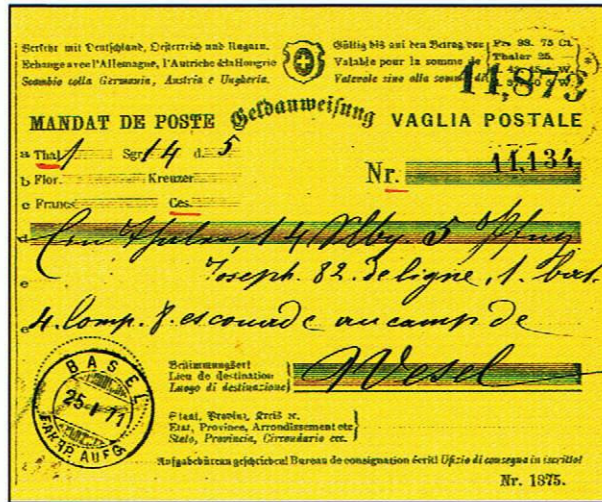 Verkehr mit Deutschland, Österreich und Ungarn.
Echange avec l'Allemagne, l'Autriche & la Hongrie
Scambio colla Germania, Austria e Ungheria.
Gültig bis auf den Betrag von
Valable pour la somme de
Valevole sino alla somma di
Frs 93. 75 Ct.
Thaler 25.
11,873
MANDAT DE POSTE Geldanweisung VAGLIA POSTALE
a Thal. 1 Sgr. 14 d. 5
b Flor. Kreuzer
c Francs Ces.
Nr. 11,134
d Ein Thaler, 14 Slbg. 5 Pfng
e Joseph. 82. de ligne, 1. bat.
e 4. Comp. 7. escouade au camp de
Bestimmungsort
Lieu de destination
Luogo di destinazione
Wesel
BASEL
25 I 71
FAHRP. AUFG.
Staat, Provinz, Kreis ꝛc.
Etat, Province, Arrondissement etc
Stato, Provincia, Circondario ecc.
Aufgabebüreau geschrieben! Bureau de consignation écrit! Ufizio di consegna in iscritto!
Nr. 1875.